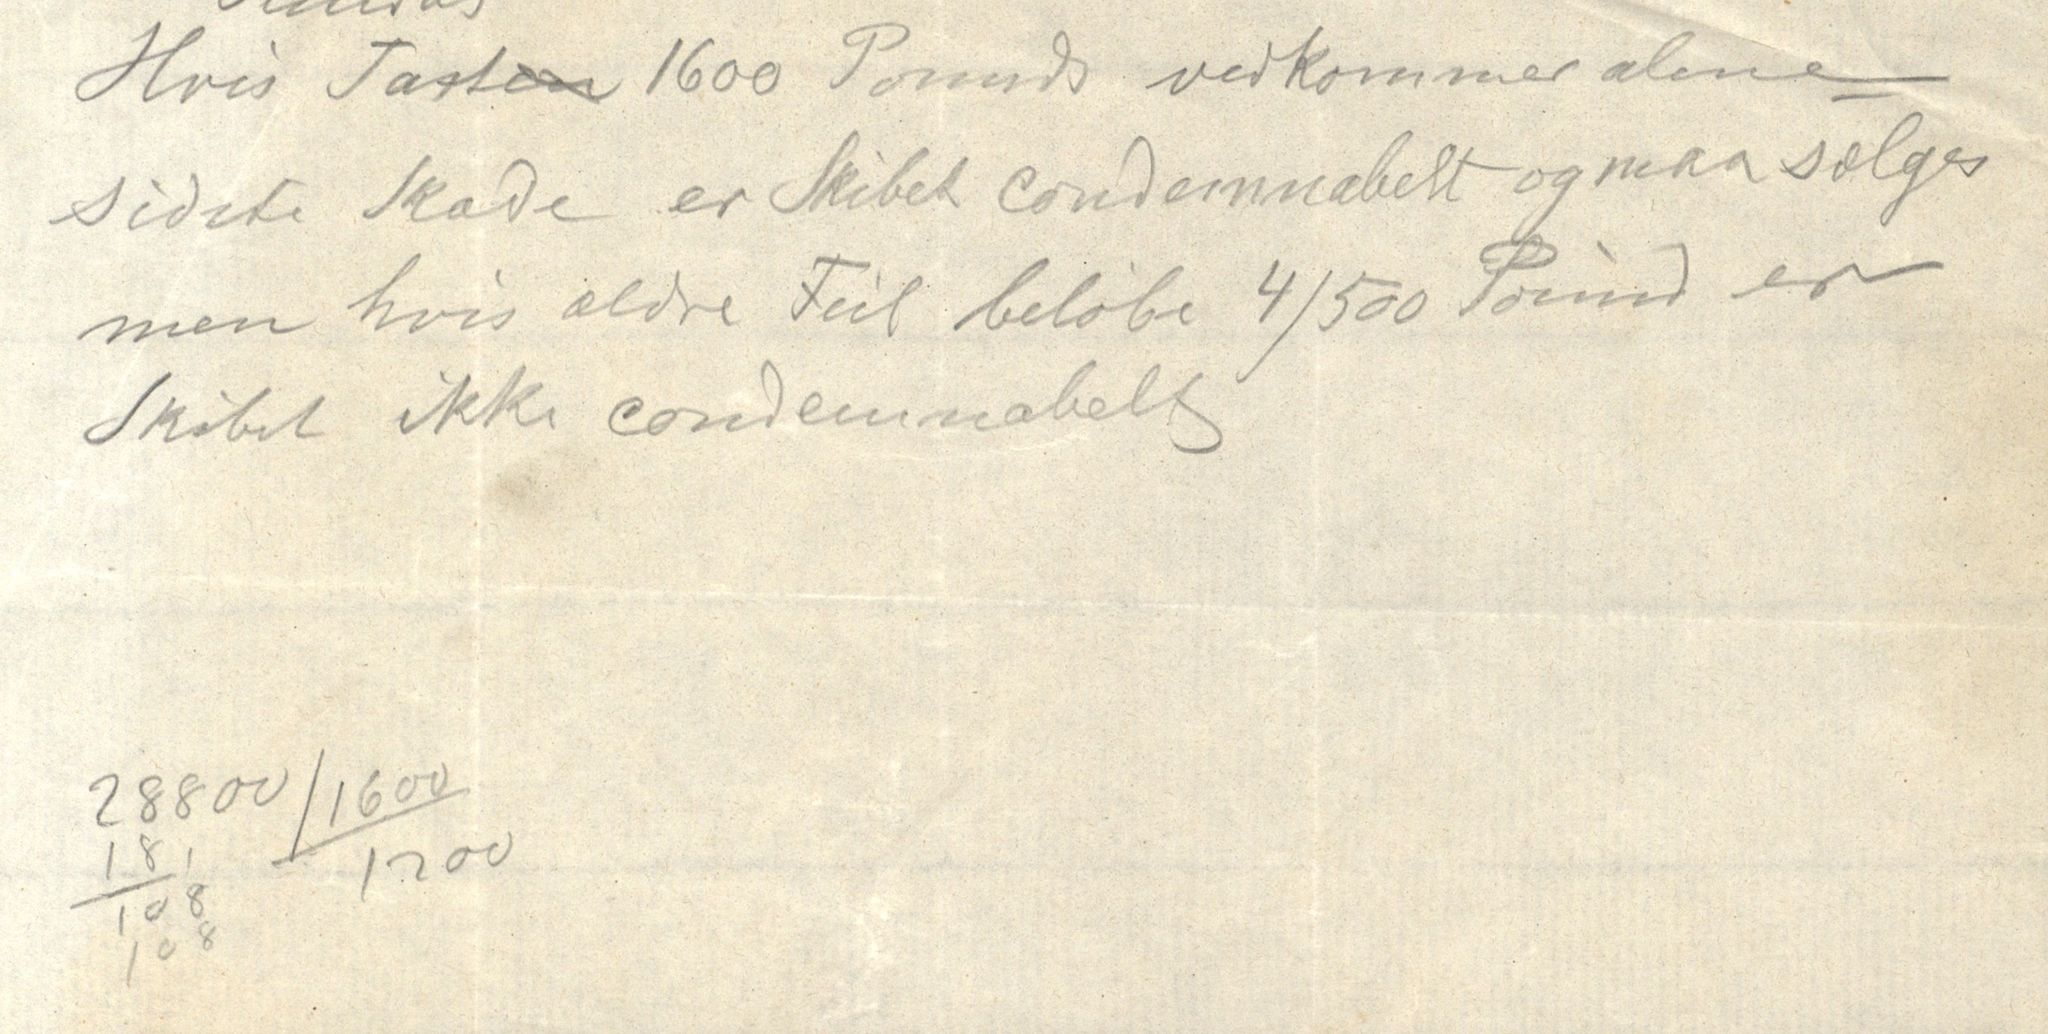 Hvis Taxten 1600 Pounds vedkommer alene
sidste Skade er Skibet condemnabelt og maa sælges
men hvis ældre Feil beløbe 4/500 Pound er
Skibet ikke condemnabelt
28800/1600
181 1200
108
108